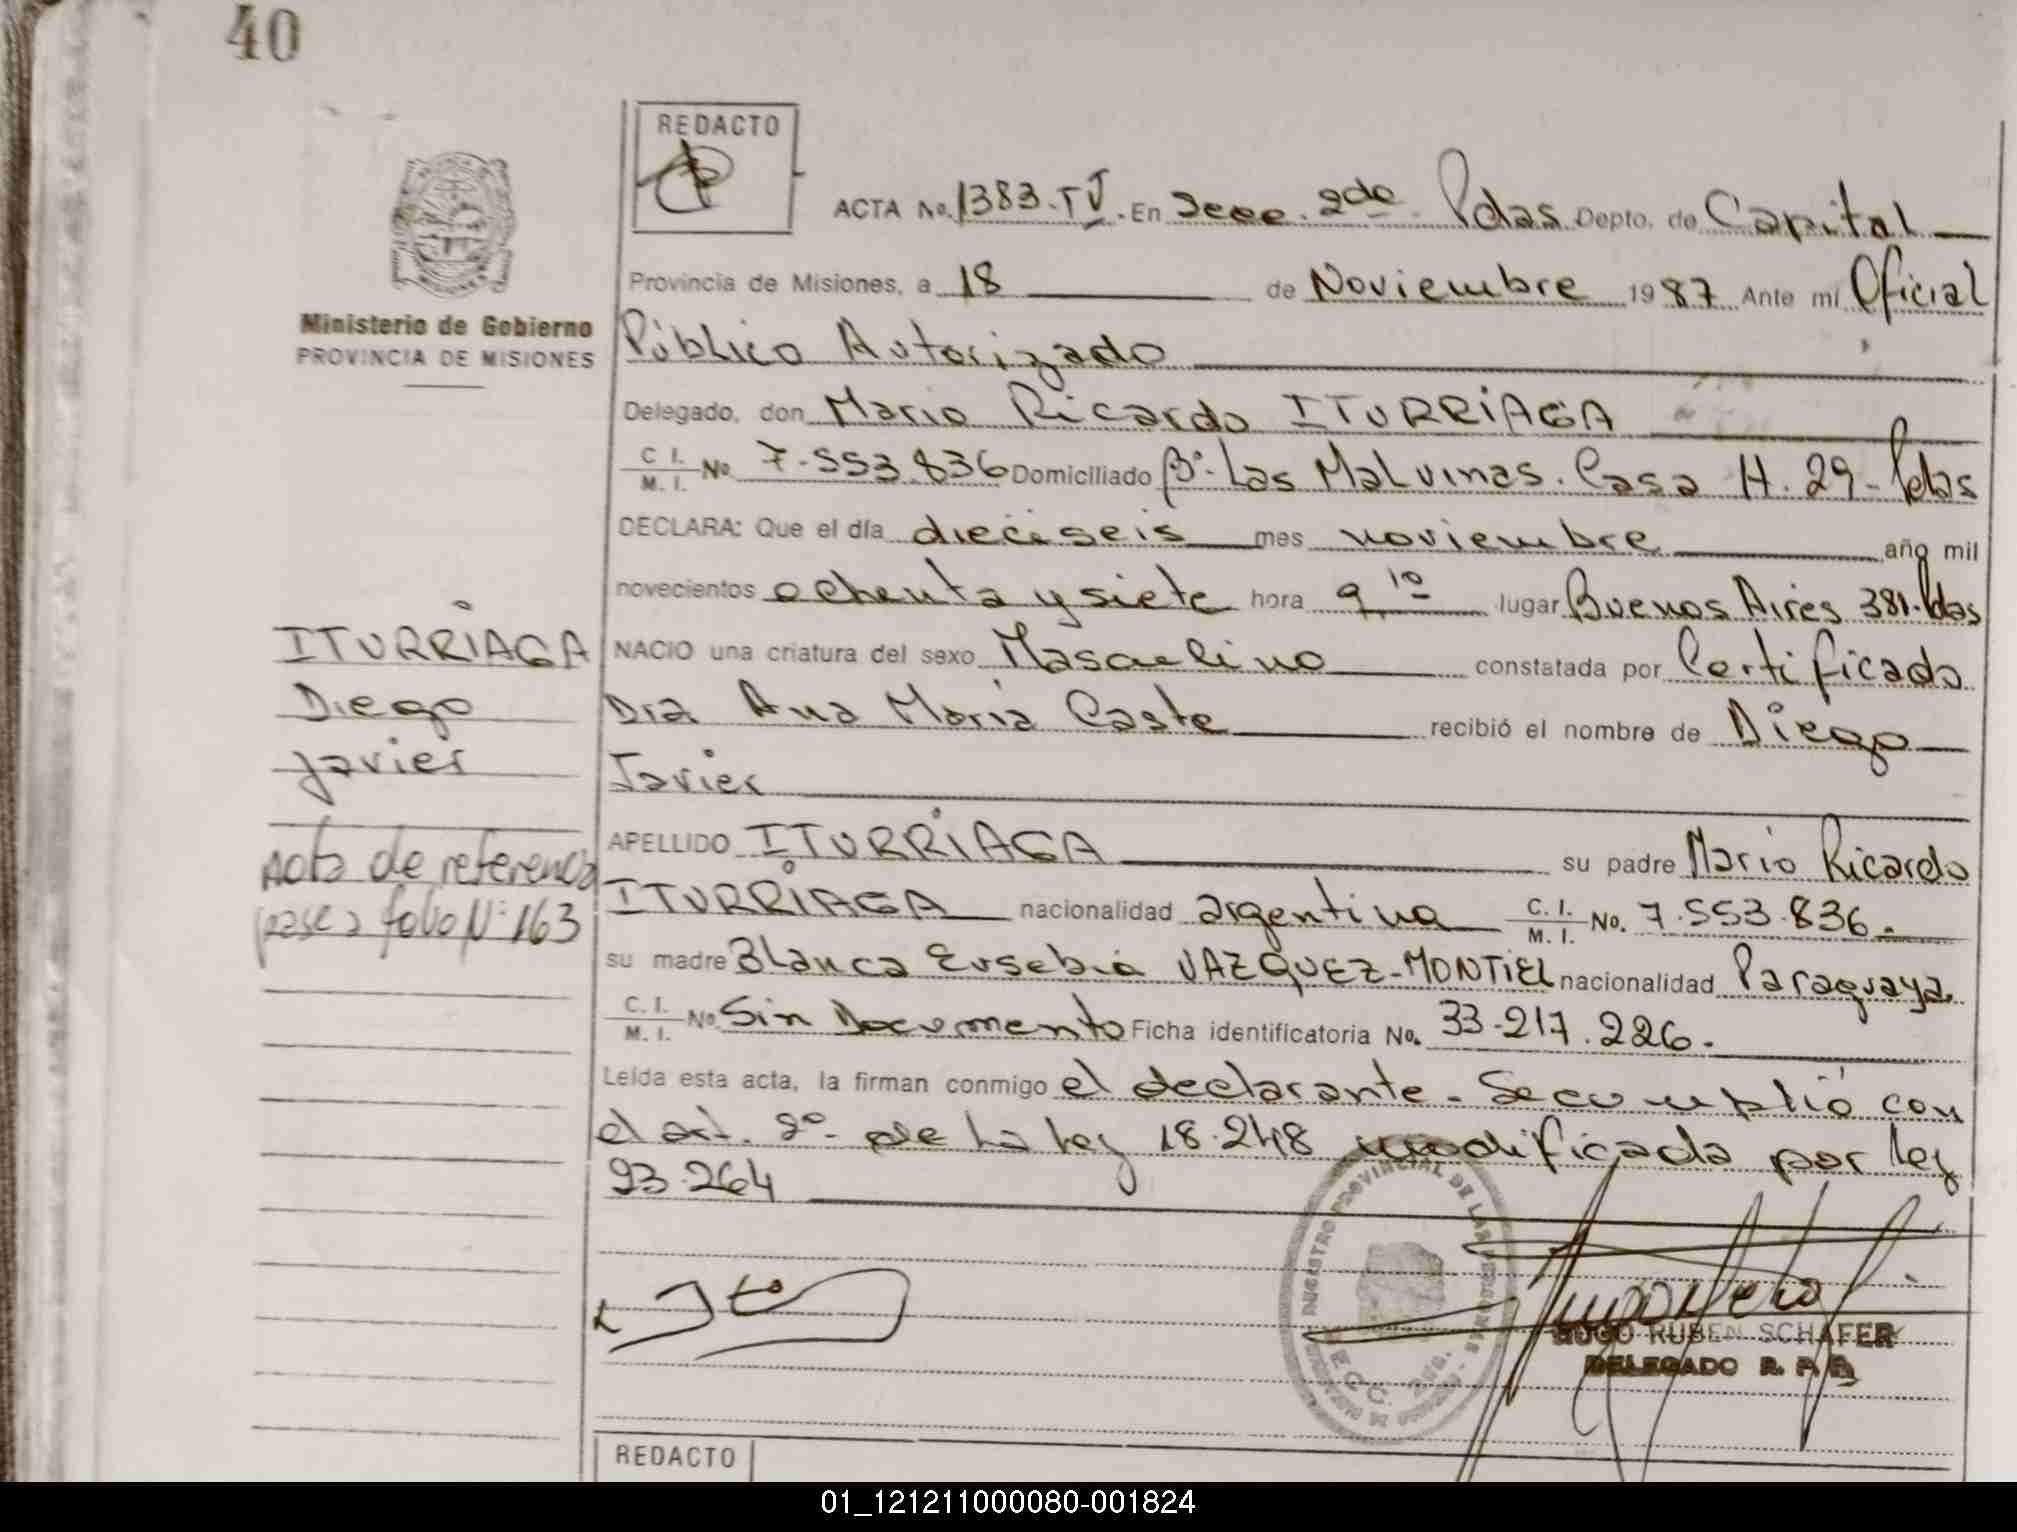 40
REDACTO
ACTA No. 1383-TV. En Secc. 2da. Pdas Depto. de Capital
Provincia de Misiones, a 18 de Noviembre 1987 Ante mí Oficial
Ministerio de Gobierno
PROVINCIA DE MISIONES
Público Autorizado
Delegado, don Mario Ricardo ITURRIAGA
C I. M. I. No. 7.553.836 Domiciliado Bº Las Malvinas. Casa H. 29- Pdas
DECLARA: Que el día dieciseis mes noviembre año mil
novecientos ochenta y siete hora 9 10 lugar Buenos Aires 381. Pdas
ITURRIAGA
Diego
Javier
NACIO una criatura del sexo Masculino constatada por Certificado
Dra Ana María Caste recibió el nombre de Diego
Javier
APELLIDO ITURRIAGA su padre Mario Ricardo
Nota de referencia
pase a folio Nº 163
ITURRIAGA nacionalidad argentina C. I. M. I. No. 7.553.836.
su madre Blanca Eusebia VAZQUEZ-MONTIEL nacionalidad Paraguaya
C. I. M. I. No. Sin Documento Ficha identificatoria No. 33.217.226.
Leída esta acta, la firman conmigo el declarante. Se cumplió con
el art. 2º de la ley 18.248 modificada por ley
23.264
REGISTRO PROVINCIAL DE LAS PERSONAS
HUGO RUBEN SCHAFER
DELEGADO R. P. P.
REDACTO
01_121211000080-001824